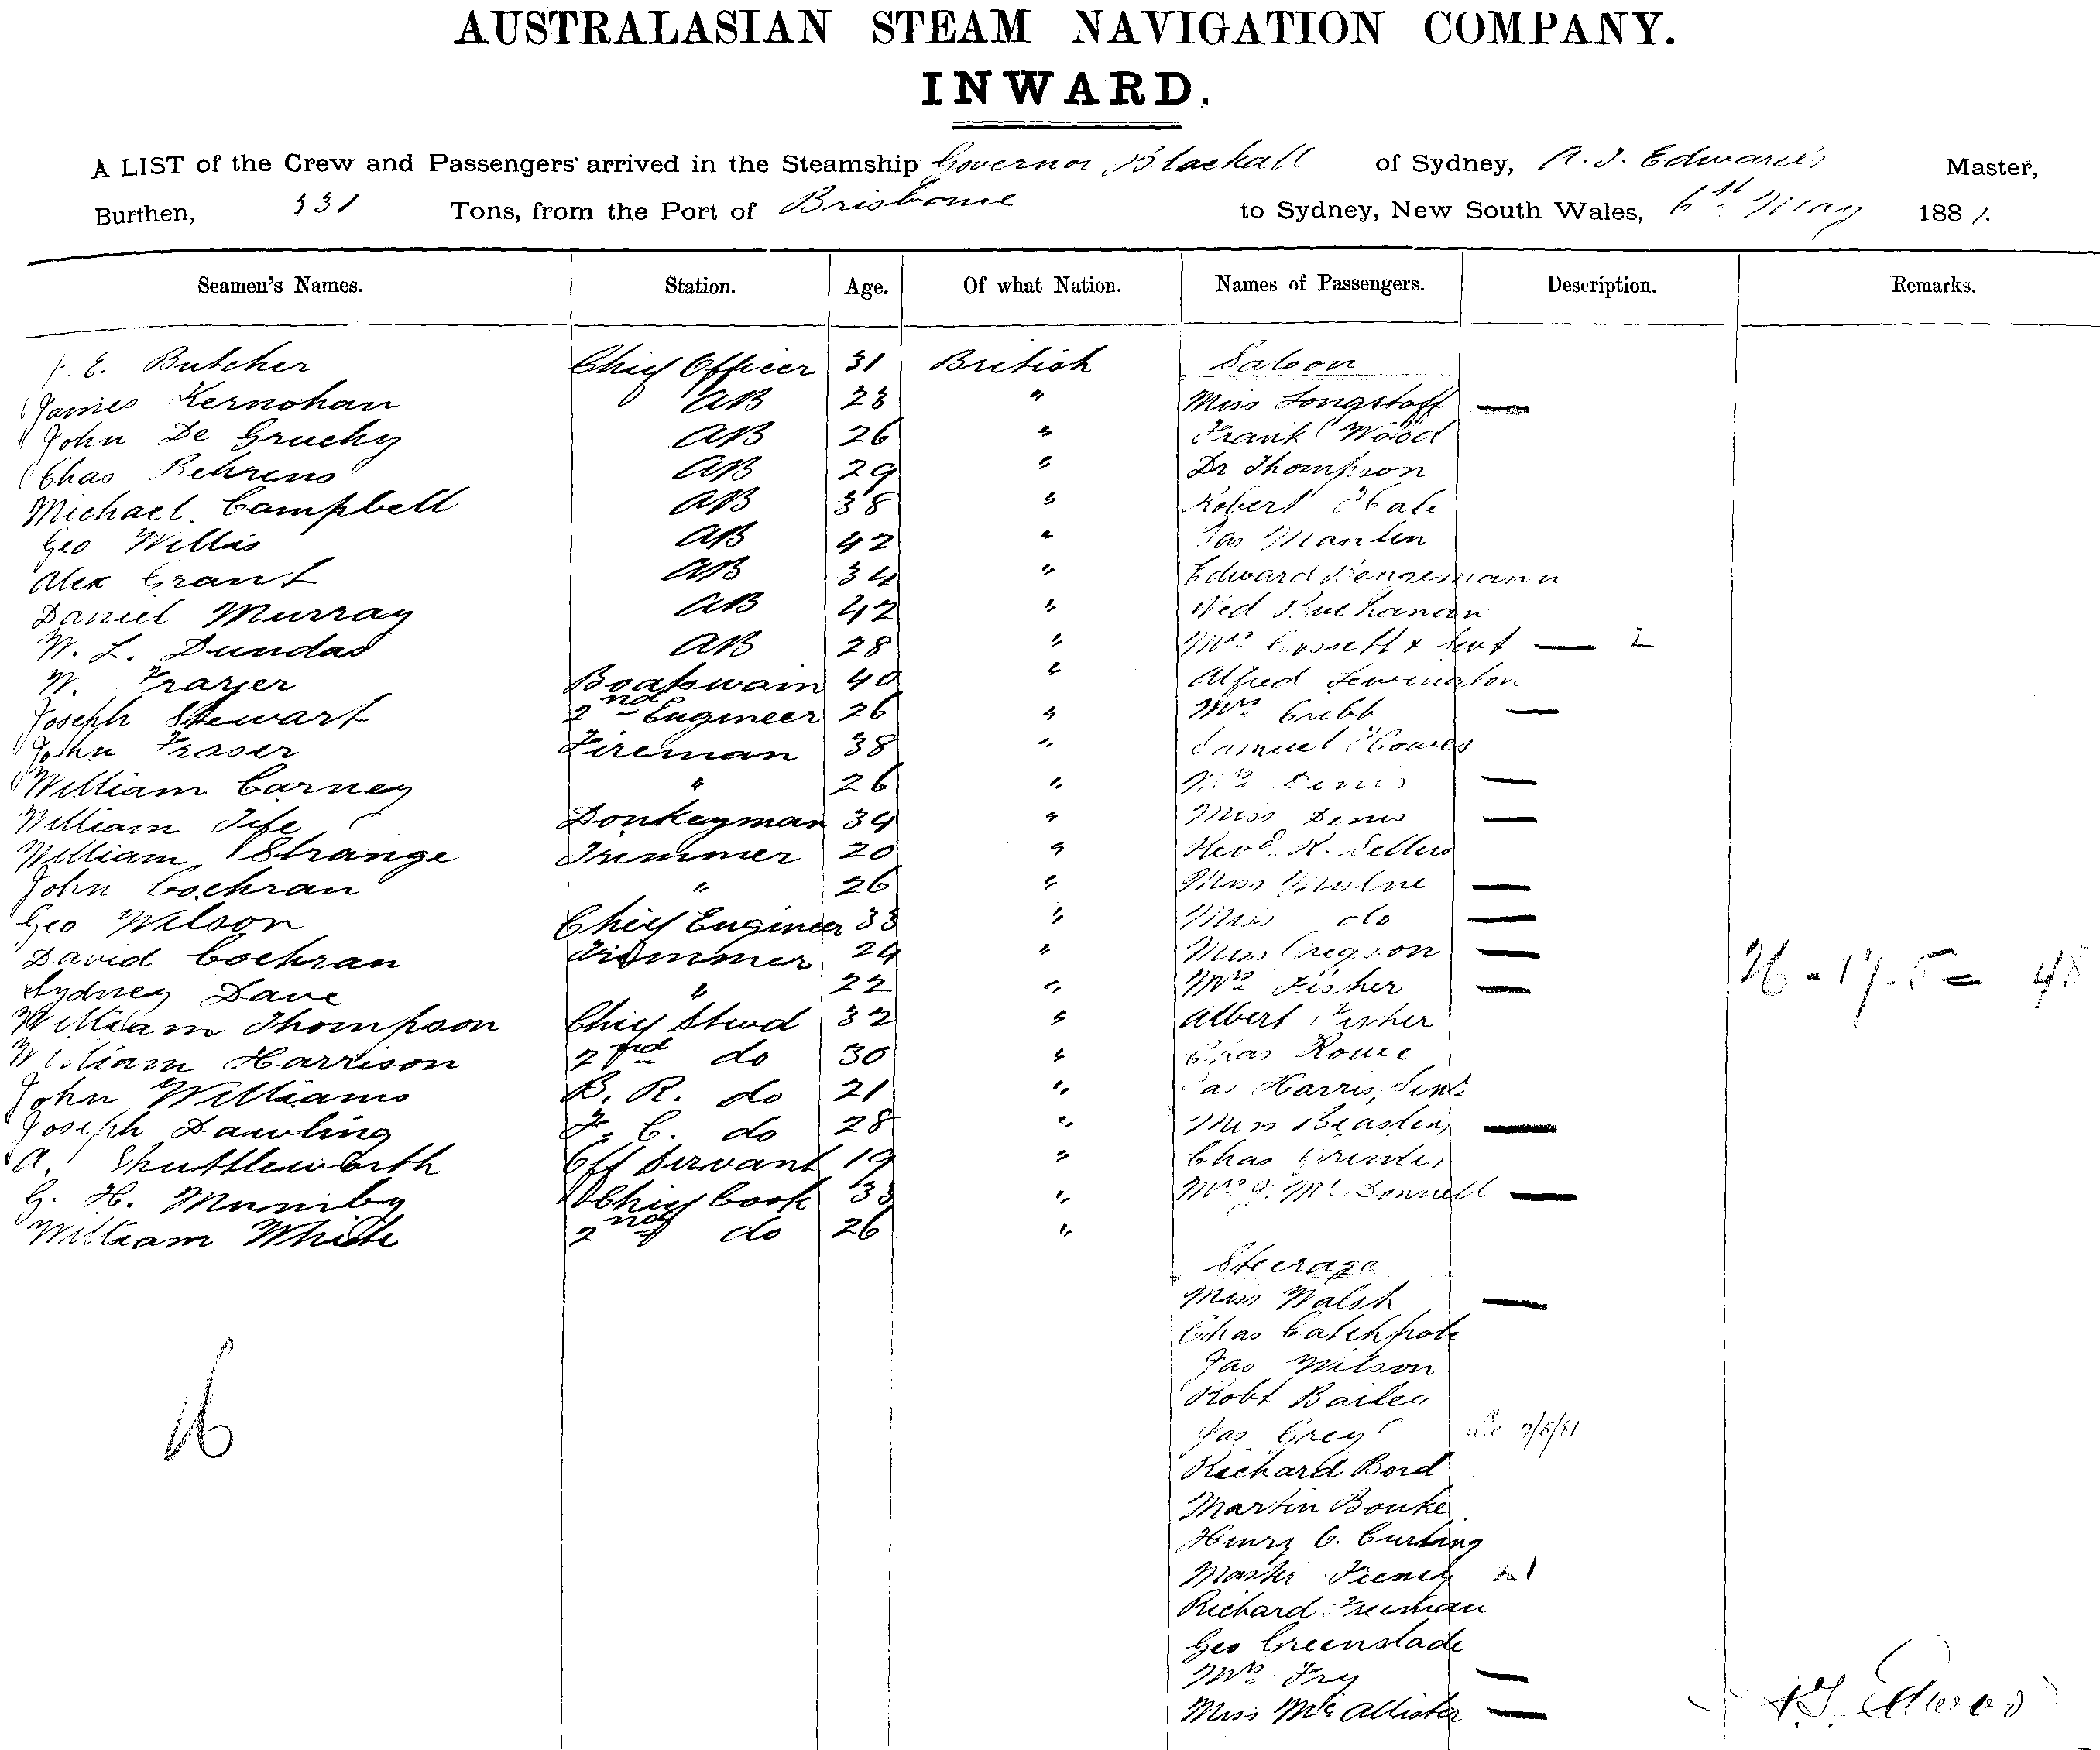 AUSTRALASIAN STEAM NAVIGATION COMPANY.
INWARD.
A LIST of the Crew and Passengers arrived in the Steamship Governor Blackall of Sydney, A. J. Edwards Master,
Burthen, 331 Tons, from the Port of Brisbane to Sydney, New South Wales, 6th May 1881.
Seamen's Names. Station. Age. Of what Nation. Names of Passengers. Description. Remarks.
E. Butcher Chief Officer 31 British Saloon
James Kernohan AB 23 " Miss Longstaff —
John De Gruchy AB 26 " Frank Wood
Chas Behrens AB 29 " Dr Thompson
Michael Campbell AB 38 " Robert Hale
Geo Willis AB 42 " Jas
Alex Grant AB 34 " Edward
Daniel Murray AB 42 " Ned Buchanan
W. L. Dundas AB 28 " Mrs Gossett & Servt — 2
W. Frazer Boatswain 40 " Alfred Lewington
Joseph Stewart 2nd Engineer 26 " Mrs Cribb —
John Fraser Fireman 38 " Samuel
William Carney " 26 " —
William Fife Donkeyman 34 " Miss —
William Strange Trimmer 20 " Revd. K. Sellers
John Cochran " 26 " Miss —
Geo Wilson Chief Engineer 33 " Miss do —
David Cochran Trimmer 24 " Miss Gregson —
Sydney Dave " 22 " Mrs Fisher — 26-17-5= 48
William Thompson Chief Stwd 32 " Albert Fisher
William Harrison 2nd do 30 " Chas Rowe
John Williams B. R. do 21 " Jas Harris, Senr
Joseph Dawling F. C. do 28 " Miss Beasley —
A. Shuttleworth Off Servant 19 " Chas
G. H. Mumby Chief Cook 33 " Mrs J. Mc Donnell —
William White 2nd do 26 "
Steerage
Miss Walsh —
Chas Catchpole
Jas Wilson
Robt Bailey
Jas Grey 7/5/81
Richard Bond
Martin Bouke
Henry C. Curling
Master Feeney
Richard Freeman
Geo Greenslade
Mrs Fry —
Miss McAllister —
26
A J Edwards